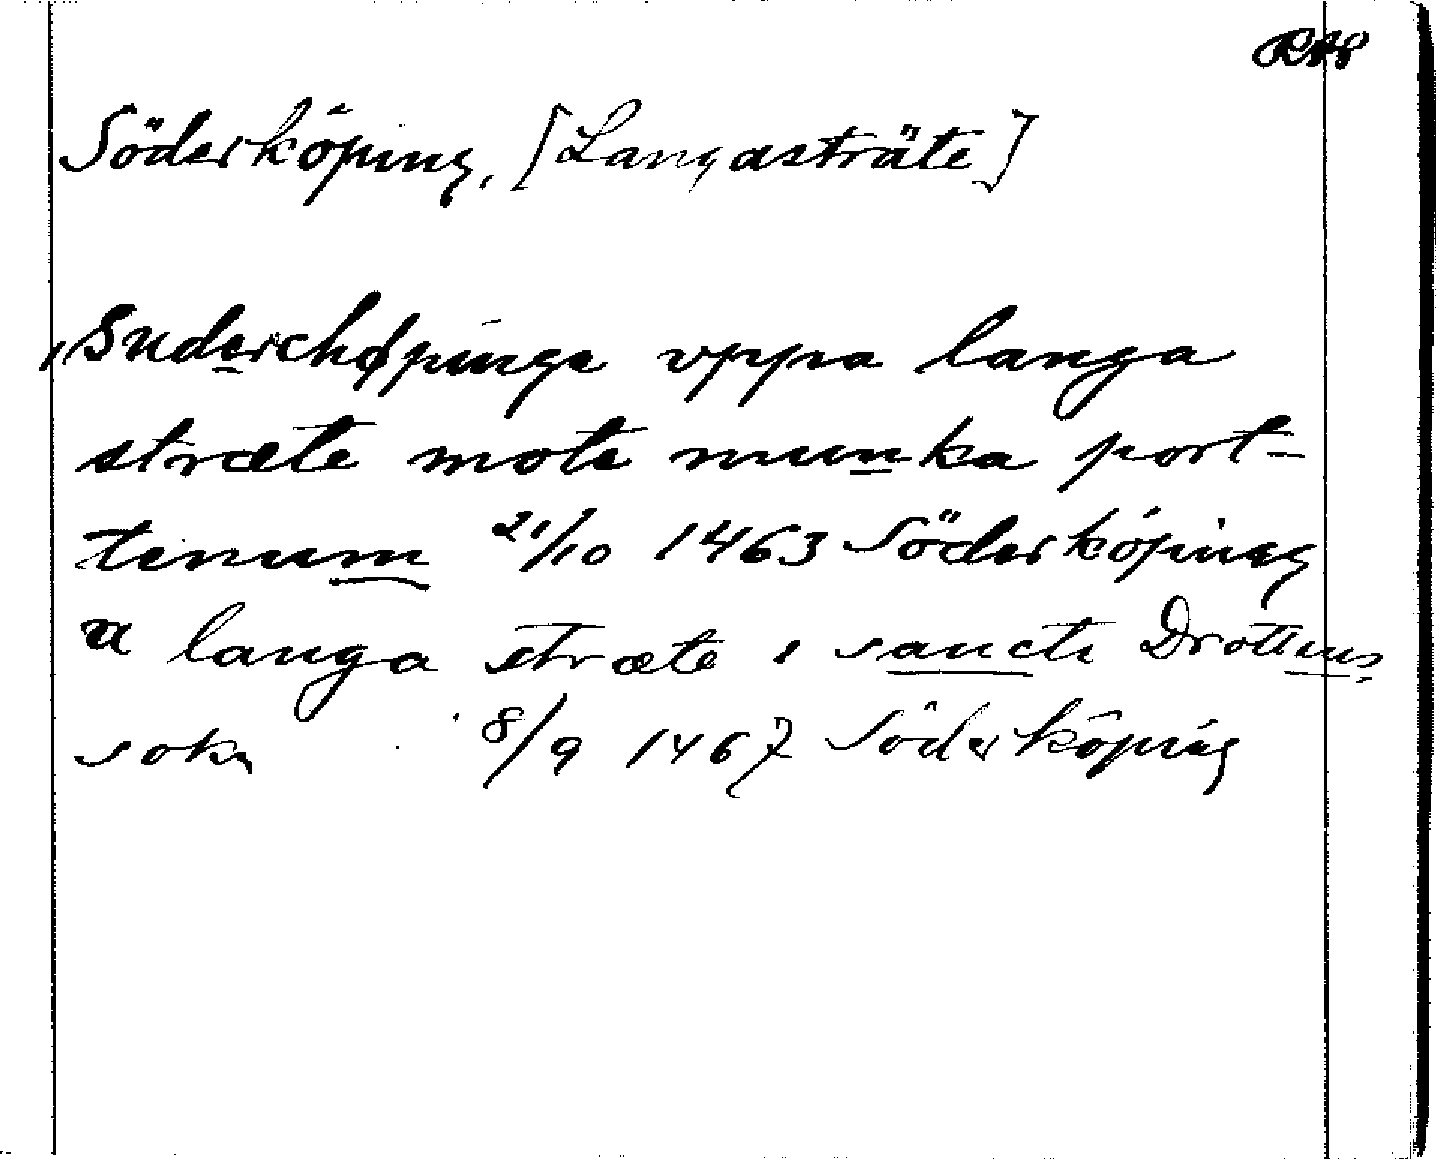 RAP
Söderköping, [Langasträte]
i Suderchøpinge vppa langa
stræte mote munka port-
tenum 21/10 1463 Söderköping
a langa stræte i sancti Drottens
sokn 8/9 1467 Söderköping